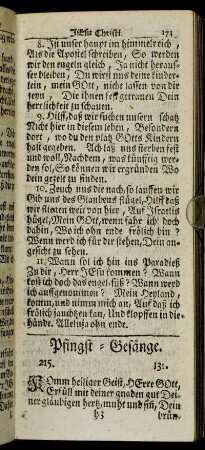 JEsu Christi. 171
8. Ist unser haupt im himmelreich,
Als die Apostel schreiben, So werden
wir den engeln gleich, Ja nicht heraus-
ser bleiben, Du wirst uns deine kinder-
lein, mein GOtt, nicht lassen von dir
seyn, Die ihnen fest getrauen Dein
herrlichkeit zu schauen.
9. Hilff, daß wir suchen unsern schatz
Nicht hier in diesem leben, Besondern
dort, wo du den platz GOttes Kindern
hast gegeben. Ach laß uns sterben fest
und woll, Nachdem, was künfftig wer-
den sol, So können wir ergründen Wo
dein gezelt zu finden.
10. Zeuch uns dir nach, so lauffen wir
Gib uns des Glaubens flügel, Hilff daß
wir fliehen weit von hier, Auf Israelis
hügel, Mein GOtt, wenn fahr ich doch
dahin, Wo ich ohn ende frölich bin?
Wenn werd ich für dir stehen, Dein an-
gesicht zu sehen.
11. Wann sol ich hin ins Paradieß
Zu dir, Herr JEsu kommen? Wann
kost ich doch das engel-süß? Wann werd
ich aufgenommen? Mein Heyland,
komm, und nimm mich an, Auf daß ich
frölich jauchtzen kan, Und klopffen in die
hände. Alleluja ohn ende.
Pfingst-Gesänge.
215. 131.
KOmm heiliger Geist, HErre GOtt,
Erfüll mit deiner gnaden gut Dei-
ner gläubigen hertz, muht und sin, Dein
h3 brün-